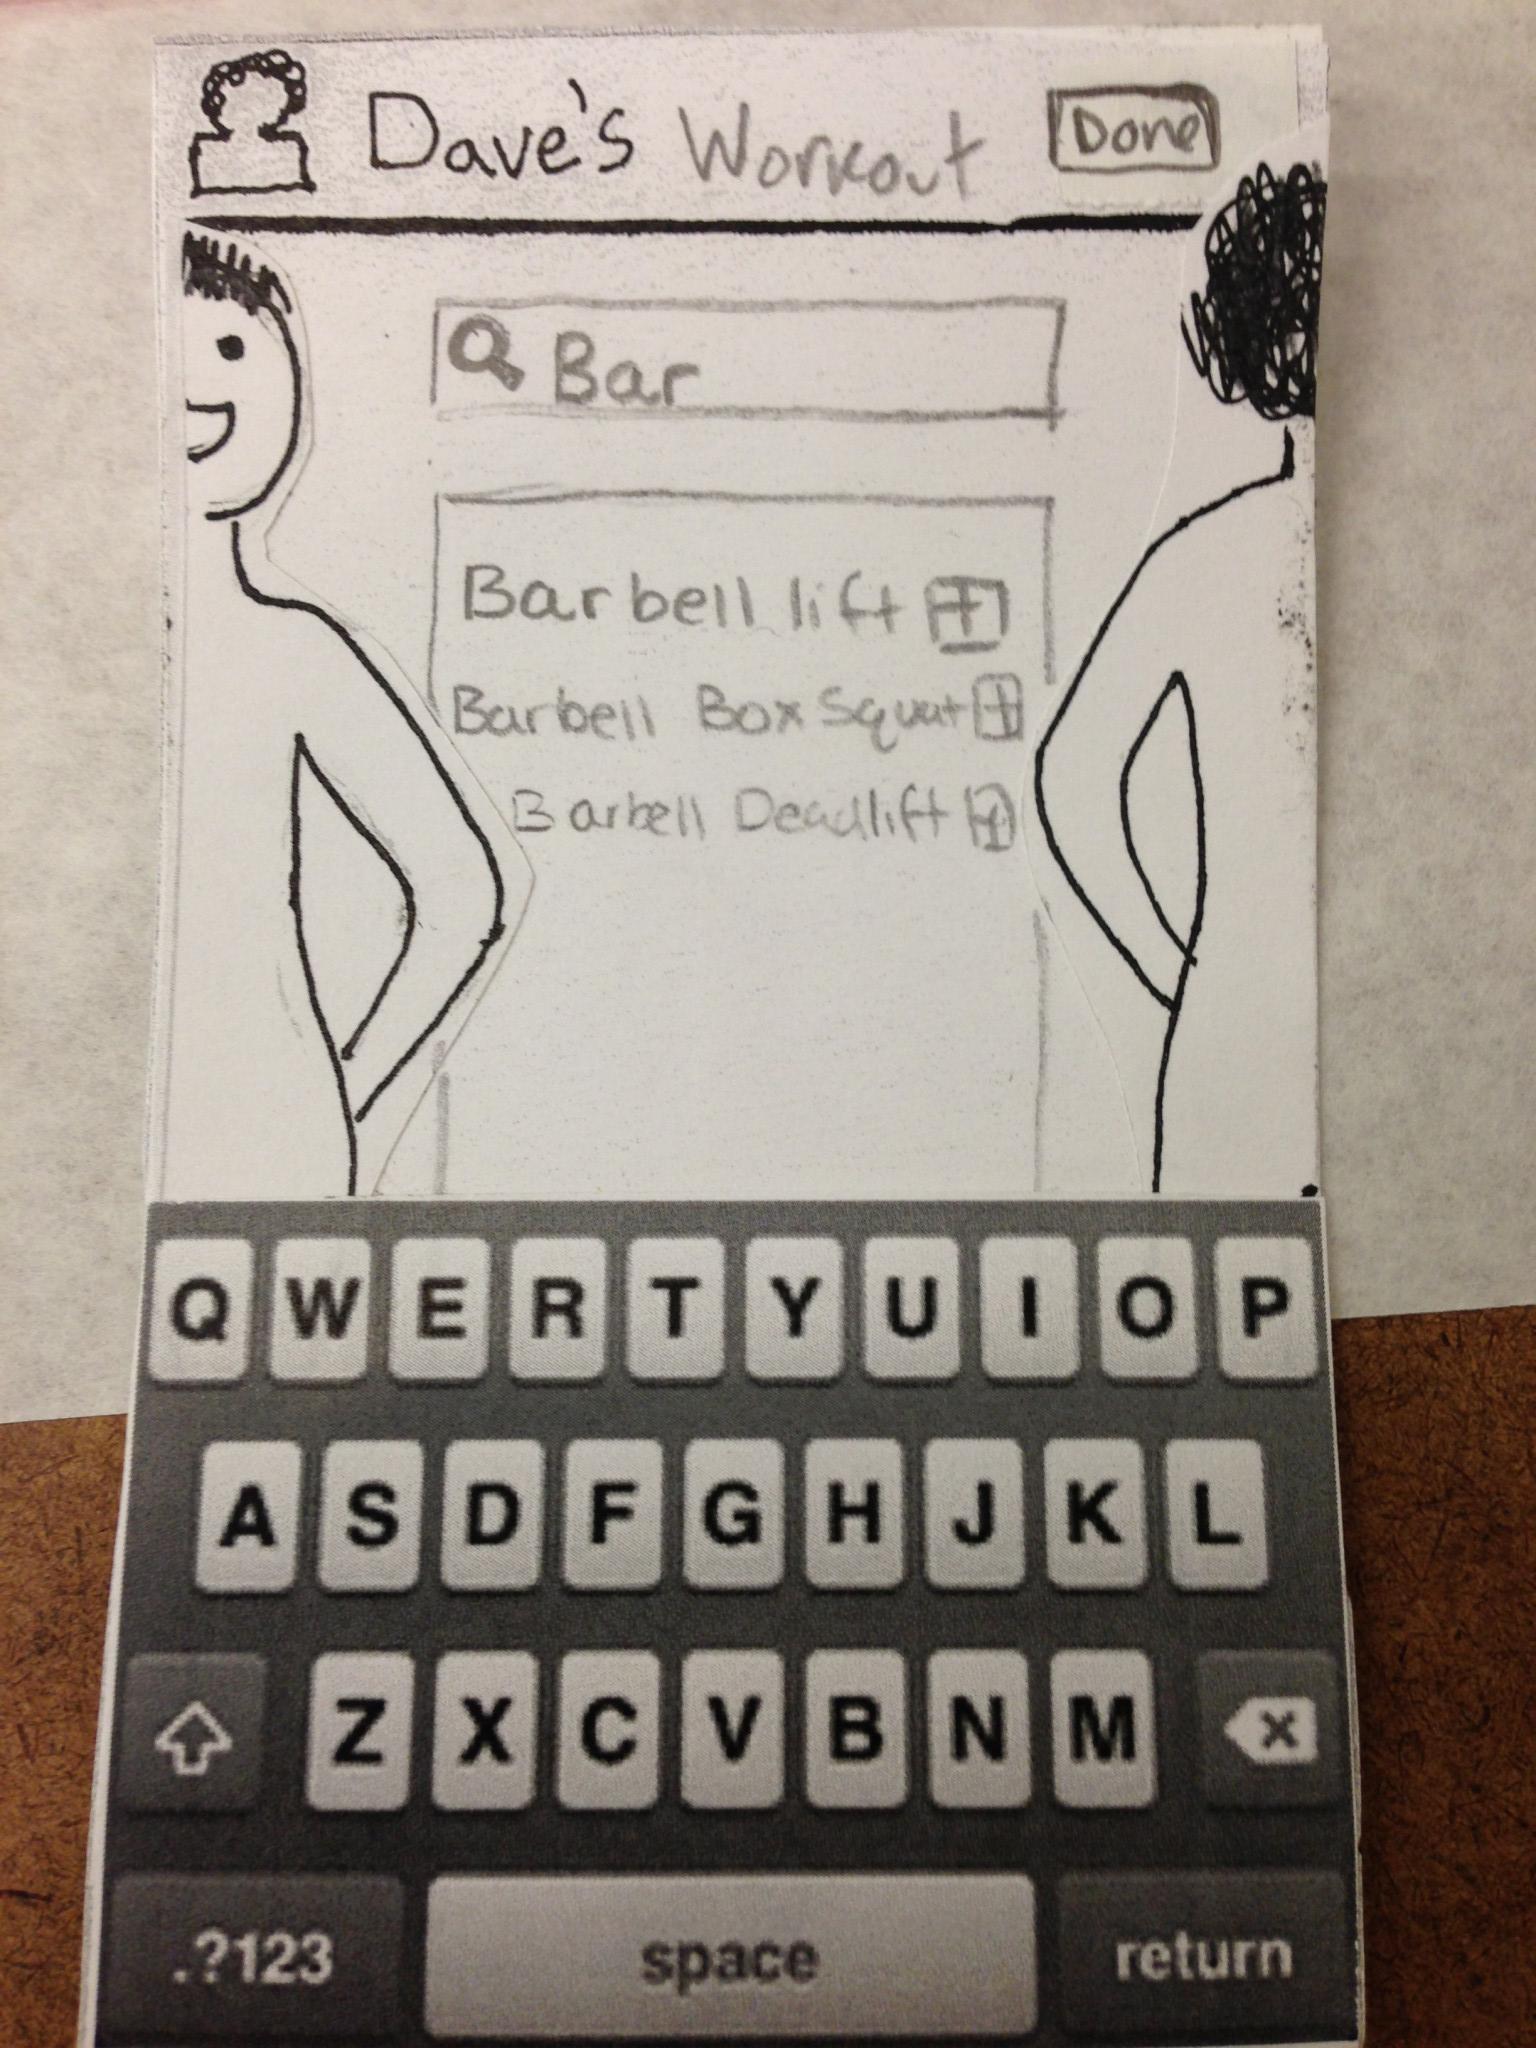 Dave's Workout Done
Bar
Barbell lift +
Barbell Box Squat +
Barbell Deadlift +
Q W E R T Y U I O P
A S D F G H J K L
Z X C V B N M
.?123 space return